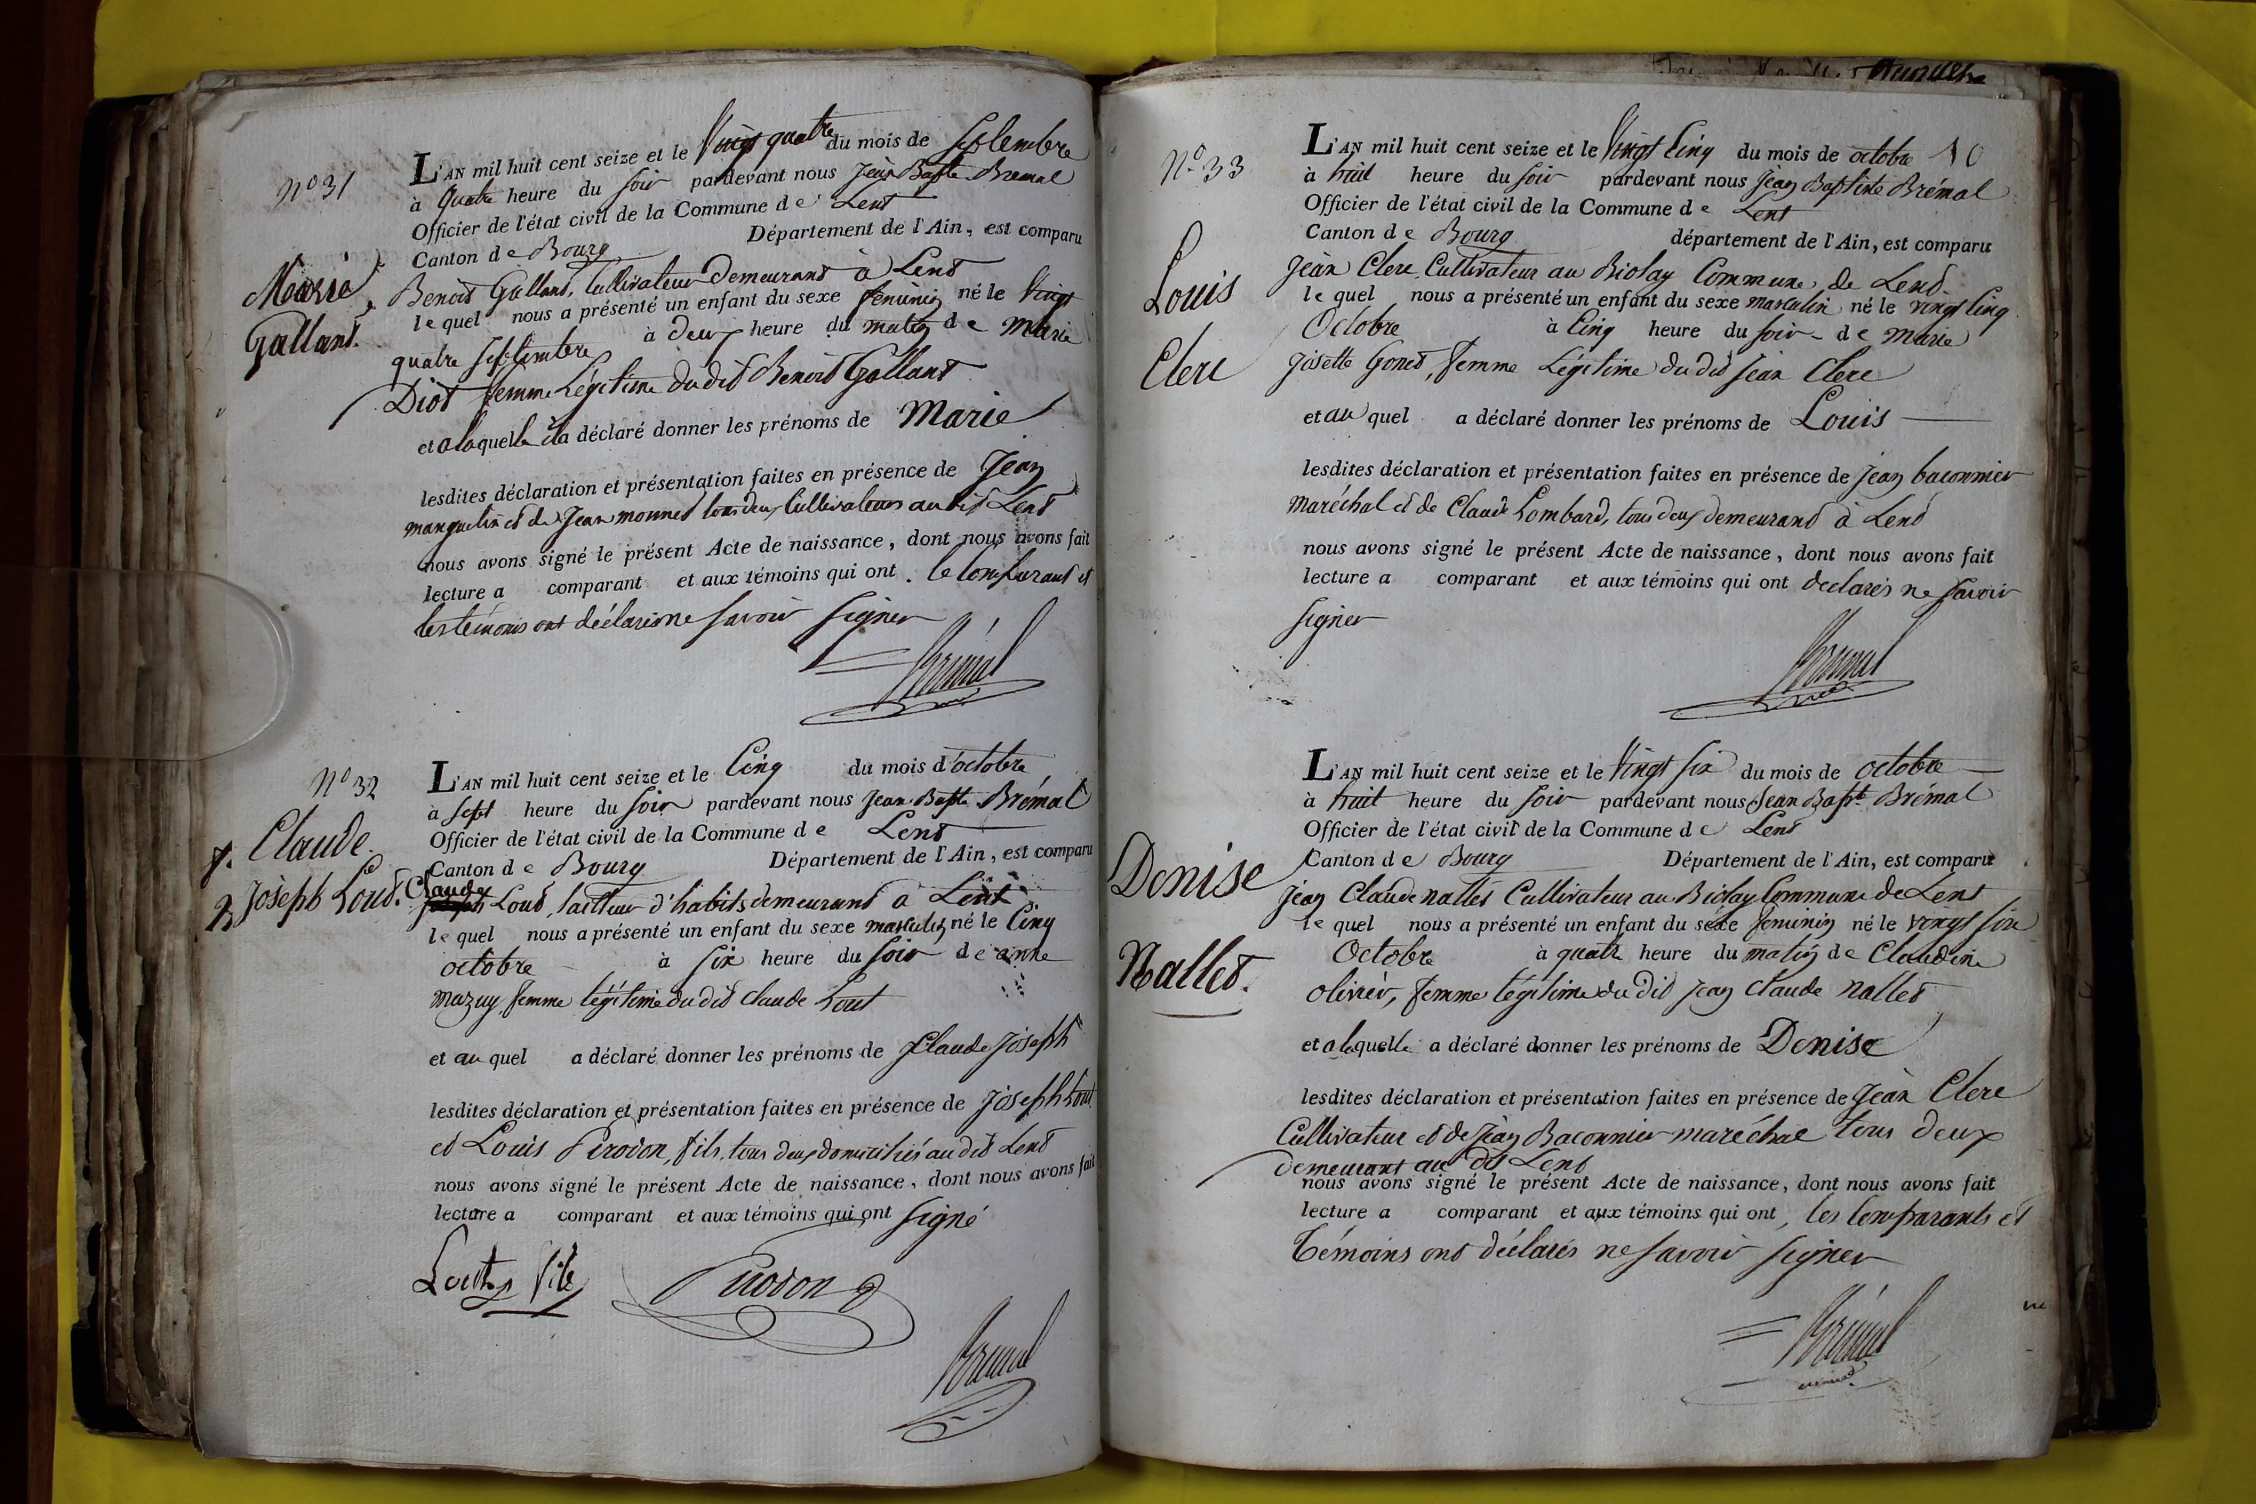 N.o 31
Marie
Galland.
L'AN mil huit cent seize et le Vingt quatre du mois de Septembre
à quatre heure du soir pardevant nous Jean Bapte Bremal
Officier de l'état civil de la Commune de Lent
Canton de Bourg Département de l'Ain, est comparu
Benoit Galland, Cultivateur Demeurant à Lent
lequel nous a présenté un enfant du sexe feminin né le Vingt
quatre Septembre à deux heure du matin de Marie
Diot femme Légitime du dit Benoit Galland
et a laquelle il a déclaré donner les prénoms de Marie
lesdites déclaration et présentation faites en présence de Jean
manguelin et de Jean monnet tous deux Cultivateurs au dit Lent
nous avons signé le présent Acte de naissance, dont nous avons fait
lecture a comparant et aux témoins qui ont. le Comparant et
les témoins ont déclaré ne savoir signer
Brémal
N.o 32
Claude
Joseph Lout.
L'AN mil huit cent seize et le Cinq du mois d'octobre
à sept heure du soir pardevant nous Jean Bapte Brémal
Officier de l'état civil de la Commune de Lent
Canton de Bourg Département de l'Ain, est comparu
Claude
Lout, facteur d'habits demeurant a Lent
lequel nous a présenté un enfant du sexe masculin né le Cinq
octobre à six heure du soir de anne
mazuy femme légitime du dit Claude Lout
et au quel a déclaré donner les prénoms de Claude Joseph
lesdites déclaration et présentation faites en présence de Joseph Lout
et Louis Pirodon, fils, tous deux domiciliés au dit Lent
nous avons signé le présent Acte de naissance, dont nous avons fait
lecture a comparant et aux témoins qui ont signé
Lout fils Pirodon
Brémal
N.o 33
Louis
Clerc
L'AN mil huit cent seize et le Vingt Cinq du mois de octobre 10
à huit heure du soir pardevant nous Jean Baptiste Brémal
Officier de l'état civil de la Commune de Lent
Canton de Bourg département de l'Ain, est comparu
Jean Clerc, Cultivateur au Biolay Commune de Lent
lequel nous a présenté un enfant du sexe masculin né le vingt Cinq
Octobre à Cinq heure du soir de marie
Josette Gonet, femme Légitime du dit Jean Clerc
et au quel a déclaré donner les prénoms de Louis
lesdites déclaration et présentation faites en présence de Jean baconnier
maréchal et de Claude Lombard, tous deux demeurant à Lent
nous avons signé le présent Acte de naissance, dont nous avons fait
lecture a comparant et aux témoins qui ont declarés ne savoir
signer
Brémal
Denise
Nallet.
L'AN mil huit cent seize et le Vingt six du mois de octobre
à huit heure du soir pardevant nous Jean Bapt Brémal
Officier de l'état civil de la Commune de Lent
Canton de Bourg Département de l'Ain, est comparu
Jean Claude nallet Cultivateur au Biolay Commune de Lent
lequel nous a présenté un enfant du sexe feminin né le vingt six
Octobre à quatre heure du matin de Claudine
olivier, femme légitime du dit Jean Claude nallet
et a laquelle a déclaré donner les prénoms de Denise
lesdites déclaration et présentation faites en présence de Jean Clerc
Cultivateur et de Jean Baconnier maréchal tous deux
demeurant au dit Lent
nous avons signé le présent Acte de naissance, dont nous avons fait
lecture a comparant et aux témoins qui ont, les Comparants et
Témoins ont déclarés ne savoir signer
Brémal